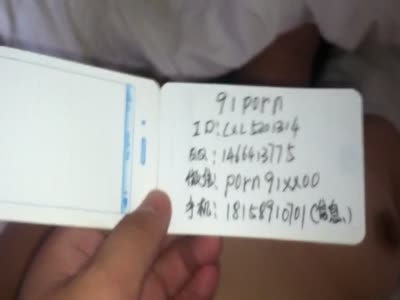 91porn
ID: LXL5201314
QQ: 1466413775
微信: porn91xx00
手机: 18158910701(信息、)